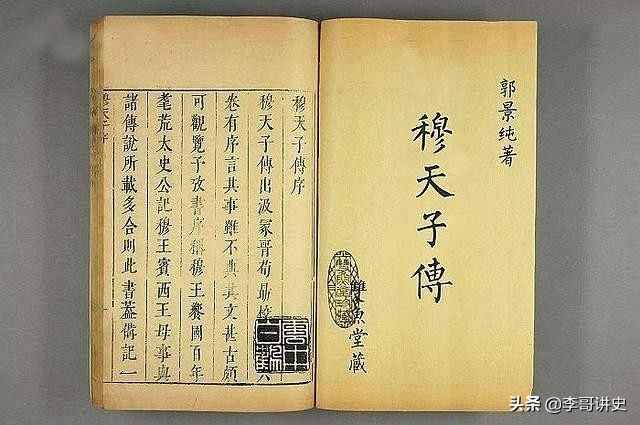 郭景纯著
穆天子傳
雙魚堂藏
穆天子傳序
穆天子傳出汲冢晉荀勗校六
卷有序言其事雖不典其文甚古頗
可觀覽予攷書序稱穆王饗國百年
耄荒太史公記穆王賓西王母事與
諸傳說所載多合則此書蓋備記一
穆天子序
头条 @李哥讲史